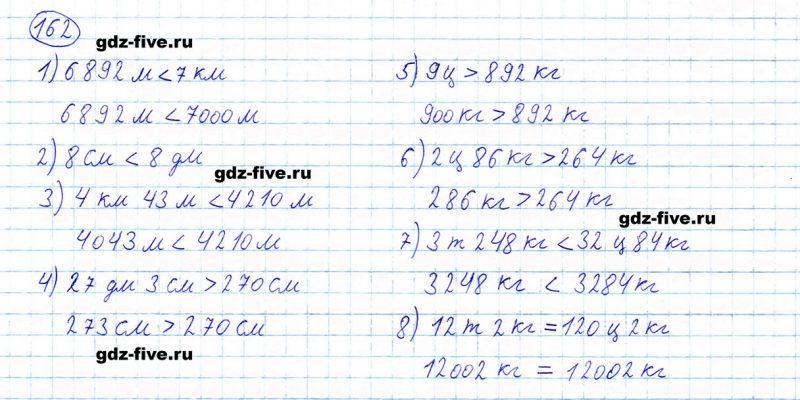 162
gdz-five.ru
1) 6892 м < 7 км
6892 м < 7000 м
2) 8 см < 8 дм
gdz-five.ru
3) 4 км 43 м < 4210 м
4043 м < 4210 м
4) 27 дм 3 см > 270 см
273 см > 270 см
gdz-five.ru
5) 9 ц > 892 кг
900 кг > 892 кг
6) 2 ц 86 кг > 264 кг
286 кг > 264 кг
gdz-five.ru
7) 3 т 248 кг < 32 ц 84 кг
3248 кг < 3284 кг
8) 12 т 2 кг = 120 ц 2 кг
12002 кг = 12002 кг